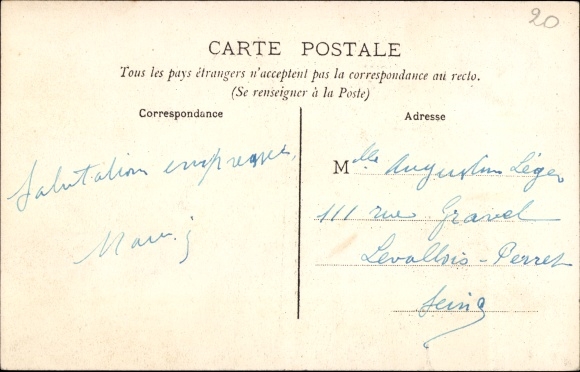 20
CARTE POSTALE
Tous les pays étrangers n'acceptent pas la correspondance au recto.
(Se renseigner à la Poste)
Correspondance
Adresse
Salutations
Mlle Augustine Léger
111 rue Gravel
Levallois-Perret
Seine